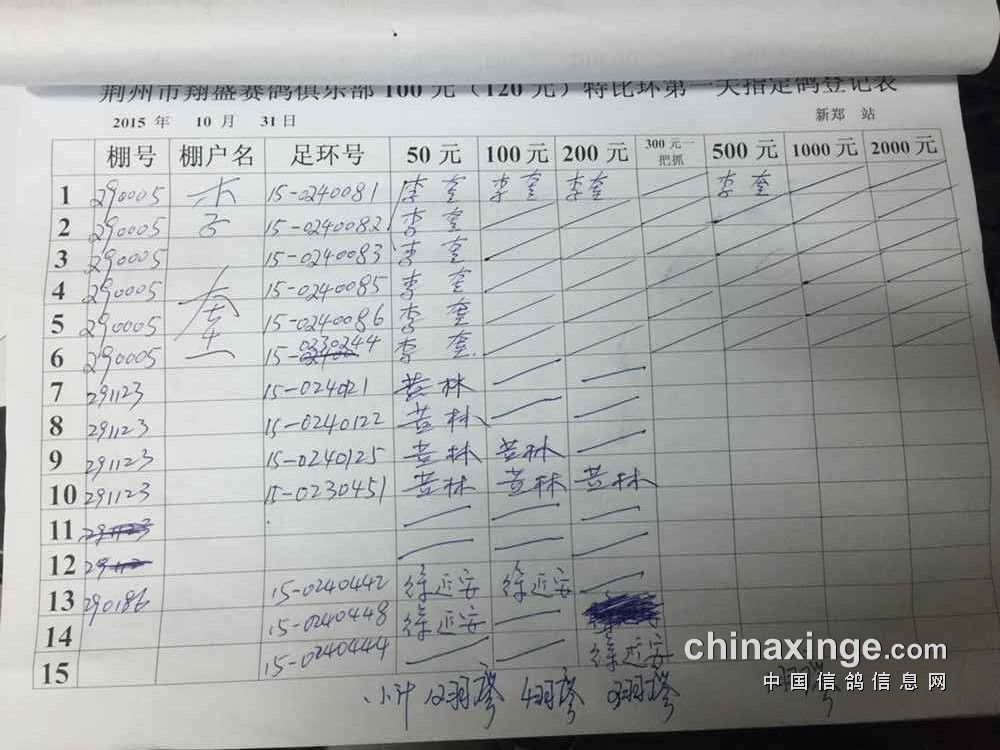 荆州市翔盛赛鸽俱乐部100元（120元）特比环第一天指定鸽登记表
2015 年 10 月 31 日 新郑 站
棚号 棚户名 足环号 50 元 100元 200 元 300 元一把抓 500 元 1000元 2000元
1 290005 李奎 15-0240081 李奎 李奎 李奎 李奎
2 290005 15-0240082 李奎
3 290005 15-0240083 李奎
4 290005 15-0240085 李奎
5 290005 15-0240086 李奎
6 290005 15-0230244 李奎
7 291123 黄林
8 291123 15-0240122 黄林
9 291123 15-0240125 黄林 黄林
10 291123 15-0230451 黄林 黄林 黄林
11
12
13 290186 15-0240442 徐延安 徐延安
14 15-0240448 徐延安
15 15-0240444 徐延安
小计 12羽 4羽 3羽
chinaxinge.com
中国信鸽信息网